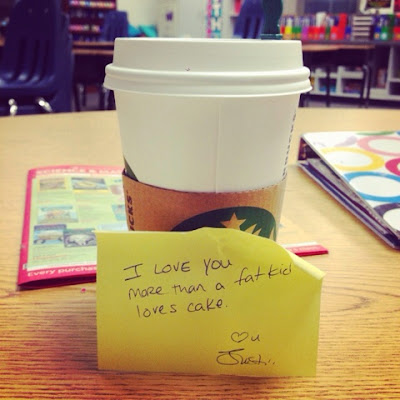 SCIENCE &
Every purchase
CKS
I LOVE YOU
more than a fat kid
loves cake.
♡ u